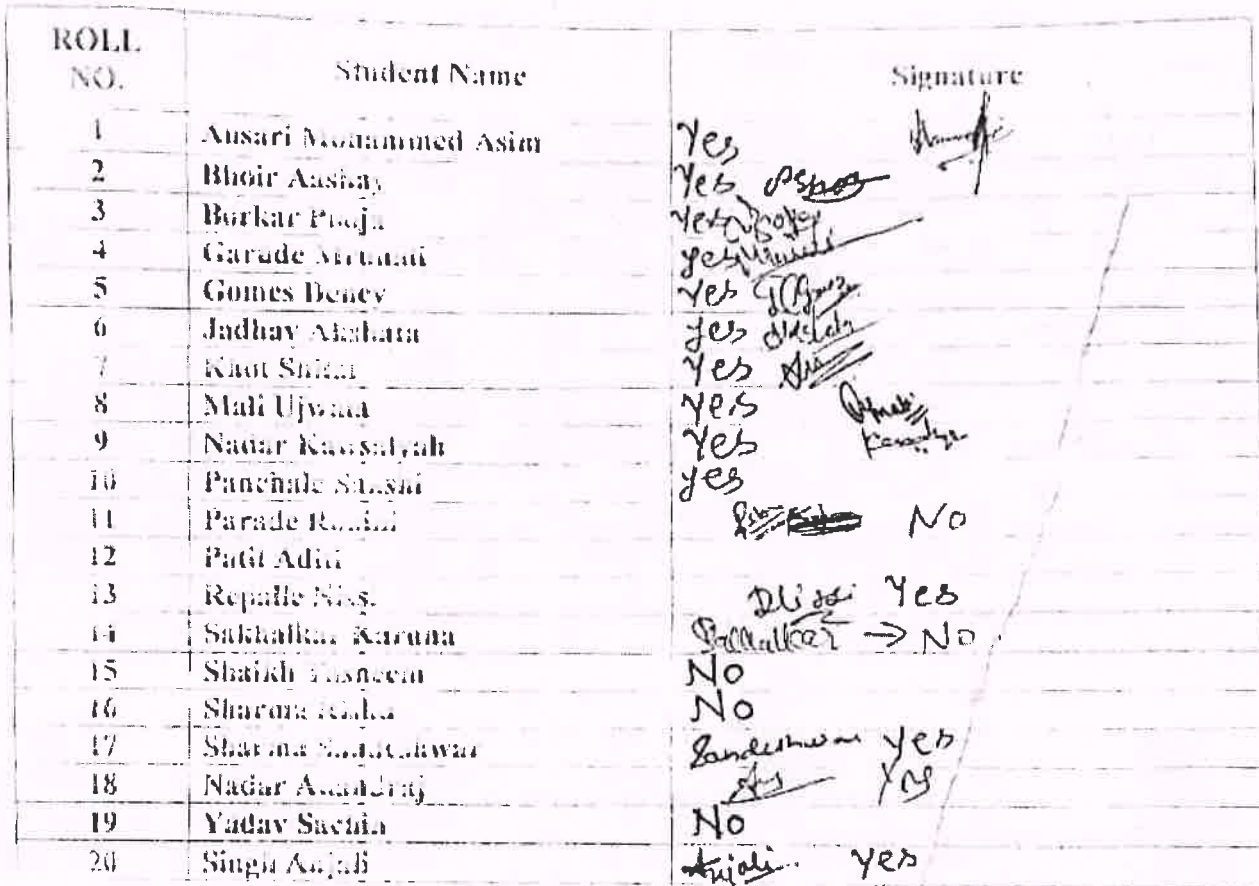 ROLL NO. Student Name Signature
1 Ansari Mohammed Asim Yes
2 Bhoir Aashay Yes
3 Borkar Pooja Yes
4 Garude Mrunali yes
5 Gomes Yes
6 Jadhav Akshata yes
7 Khot Yes
8 Mali Ujwala Yes
9 Nadar Kausalyah Yes
10 Panchale Sakshi yes
11 Parade No
12 Patil Aditi
13 Repalle Yes
14 Sakhalkar Karuna Sakhalkar → No
15 Shaikh Tasneem No
16 Sharma No
17 Sharma Sandeshwar yes
18 Nadar Anandraj Yes
19 Yadav Sachin No
20 Singh Anjali Anjali yes